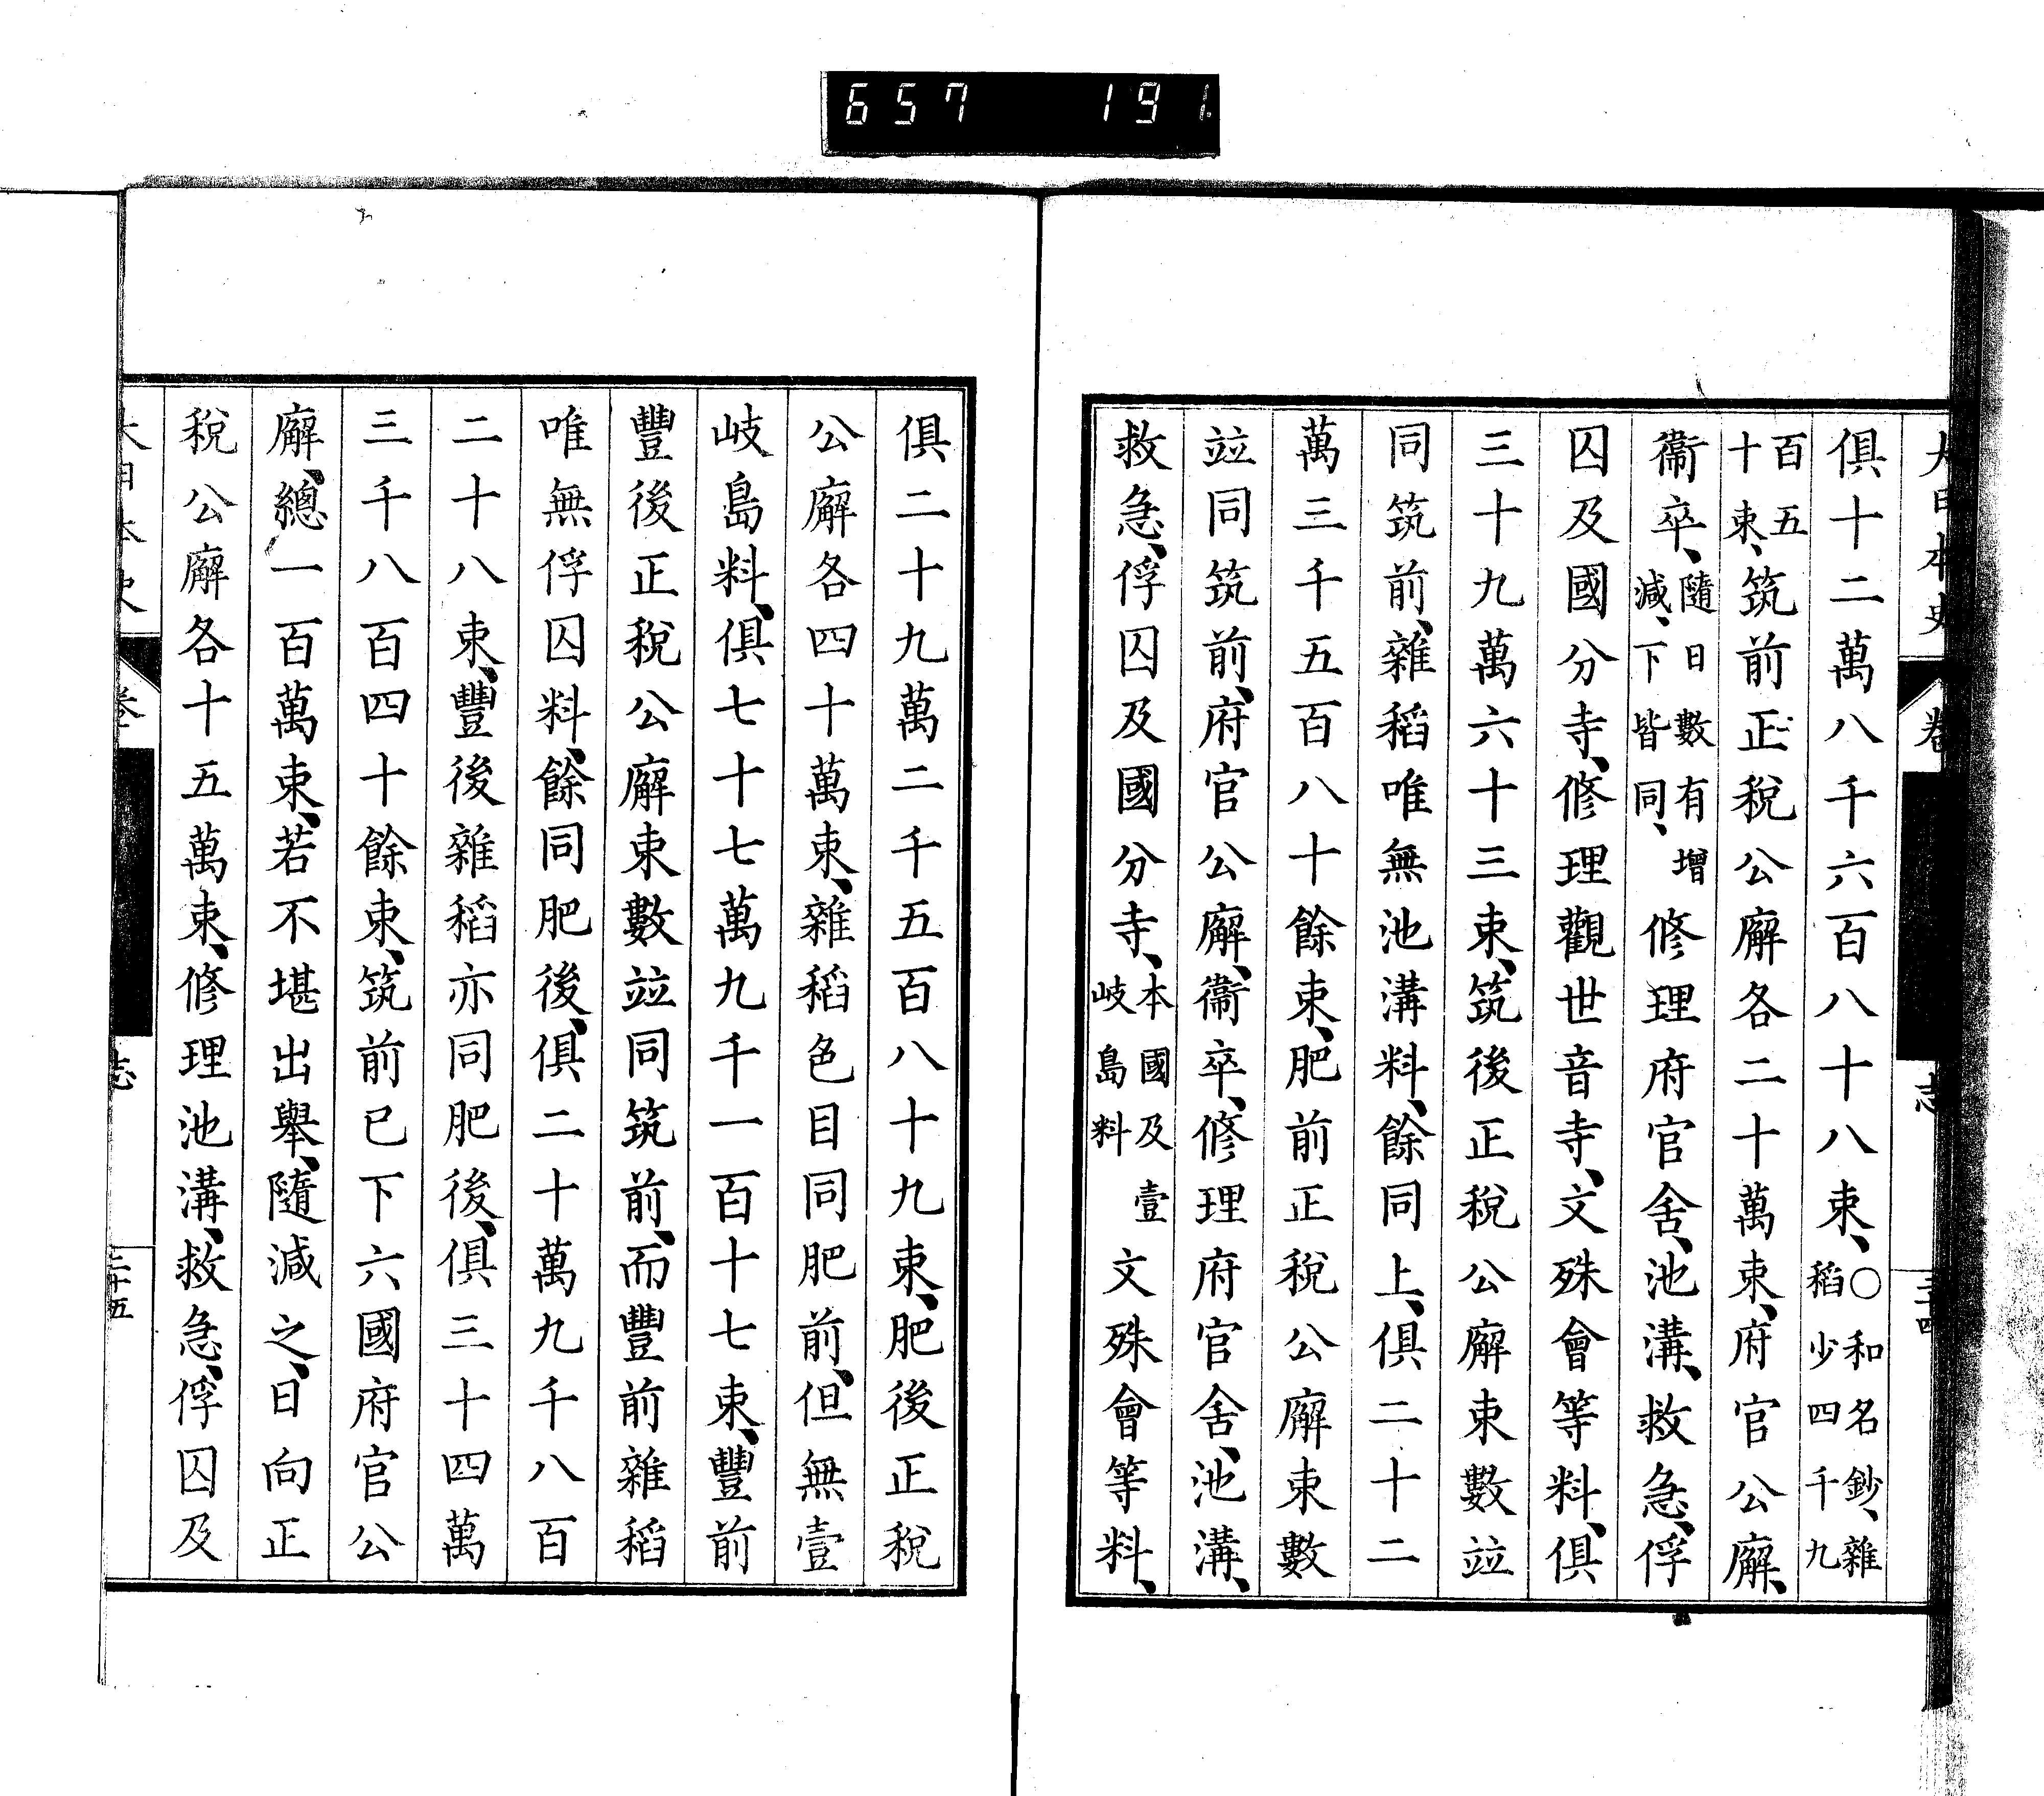 657 191
大日本史 卷 志 三十四
俱十二萬八千六百八十八束、○和名鈔、雜稻少四千九
百五十束、筑前正稅公廨各二十萬束、府官公廨、
衞卒、隨日數有增減、下皆同、修理府官舍、池溝、救急、俘
囚及國分寺、修理觀世音寺、文殊會等料、俱
三十九萬六十三束、筑後正稅公廨束數竝
同筑前、雜稻唯無池溝料、餘同上、俱二十二
萬三千五百八十餘束、肥前正稅公廨束數
竝同筑前、府官公廨、衞卒、修理府官舍、池溝、
救急、俘囚及國分寺、本國及壹岐島料文殊會等料、
俱二十九萬二千五百八十九束、肥後正稅
公廨各四十萬束、雜稻色目同肥前、但無壹
岐島料、俱七十七萬九千一百十七束、豐前
豐後正稅公廨束數竝同筑前、而豐前雜稻
唯無俘囚料、餘同肥後、俱二十萬九千八百
二十八束、豐後雜稻亦同肥後、俱三十四萬
三千八百四十餘束、筑前已下六國府官公
廨、總一百萬束、若不堪出舉、隨減之、日向正
稅公廨各十五萬束、修理池溝、救急、俘囚及
大日本史 卷 志 三十五